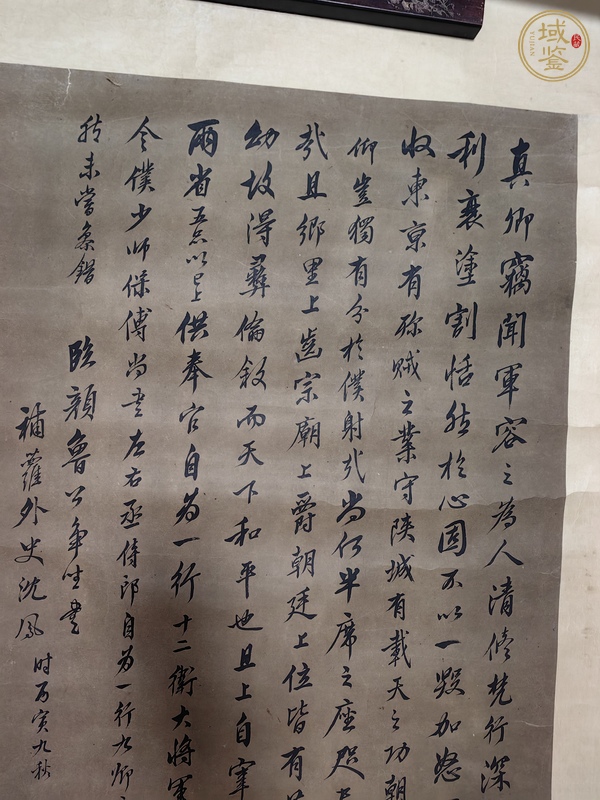 真卿竊聞軍容之為人清修梵行深
利襄塗割恬然於心固不以一毀加怒
收東京有殄賊之業守陝城有載天之功朝
仰豈獨有分於僕射哉尚何半席之座咫
哉且鄉里上齒宗廟上爵朝廷上位皆有
幼故得彝倫敘而天下和平也且上自宰
兩省五品以上供奉官自為一行十二衛大將軍
令僕少師保傅尚書左右丞侍郎自為一行九卿
然未嘗參錯
臨顏魯公争坐書
補蘿外史沈鳳時丙寅九秋
域鑒
YUJIAN